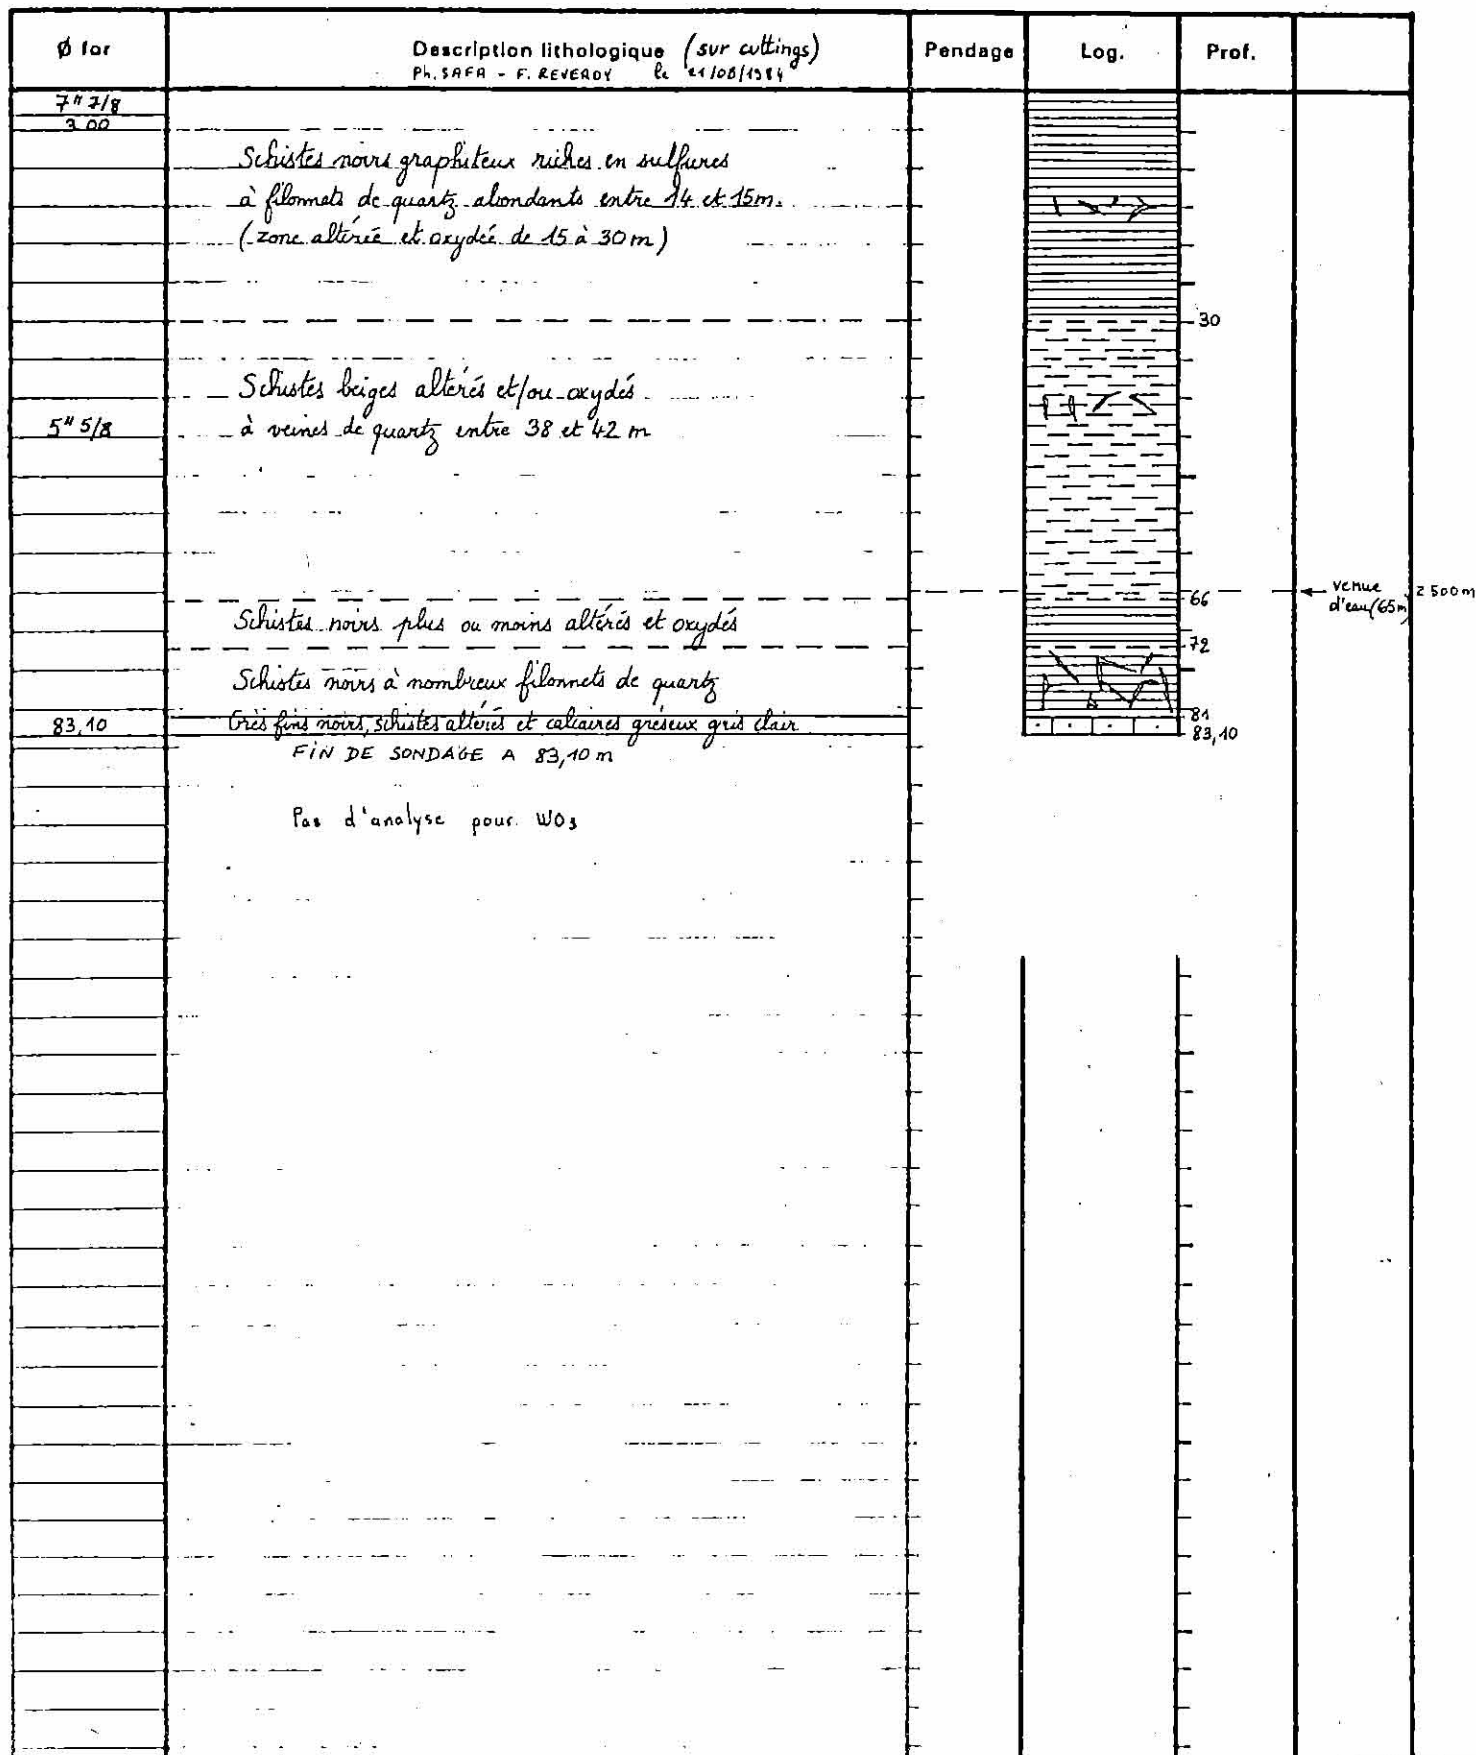 Ø for
Description lithologique (sur cuttings)
Ph. SAFA - F. REVERDY le 21/08/1984
Pendage
Log.
Prof.
7" 7/8
3.00
Schistes noirs graphiteux riches en sulfures
à filonnets de quartz abondants entre 14 et 15m.
(zone altérée et oxydée de 15 à 30 m)
30
Schistes beiges altérés et/ou oxydés
à veines de quartz entre 38 et 42 m
5" 5/8
venue 2 500 m
d'eau (65m
66
Schistes noirs plus ou moins altérés et oxydés
72
Schistes noirs à nombreux filonnets de quartz
81
83,10
Grès fins noirs, schistes altérés et calcaires gréseux gris clair
83,10
FIN DE SONDAGE A 83,10 m
Pas d'analyse pour WO3